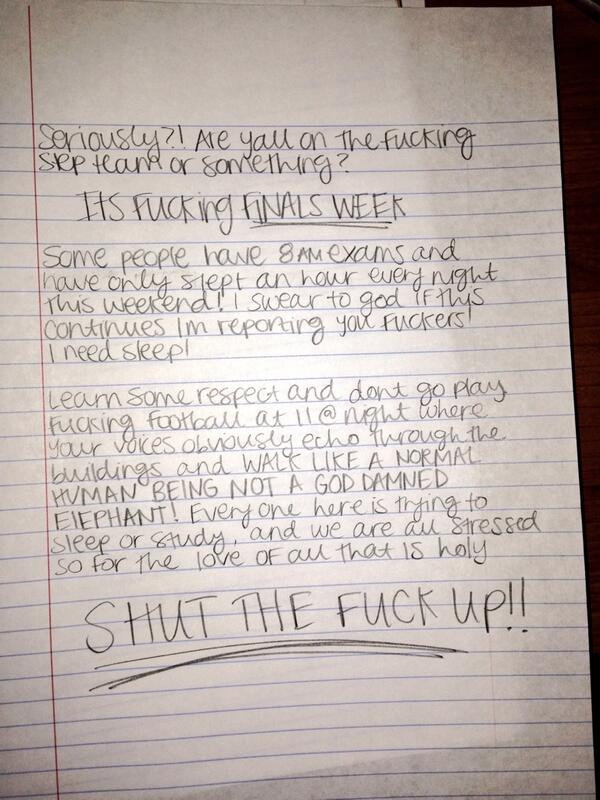 Seriously?! Are yall on the fucking
step team or something?
ITS FUCKING FINALS WEEK
Some people have 8AM exams and
have only slept an hour every night
this weekend! I swear to god if this
continues Im reporting you fuckers!
I need sleep!
Learn some respect and dont go play
fucking football at 11@night where
your voices obviously echo through the
buildings and WALK LIKE A NORMAL
HUMAN BEING NOT A GOD DAMNED
ElEPHANT! Everyone here is trying to
sleep or study, and we are all stressed
so for the love of all that is holy
SHUT THE FUCK UP!!